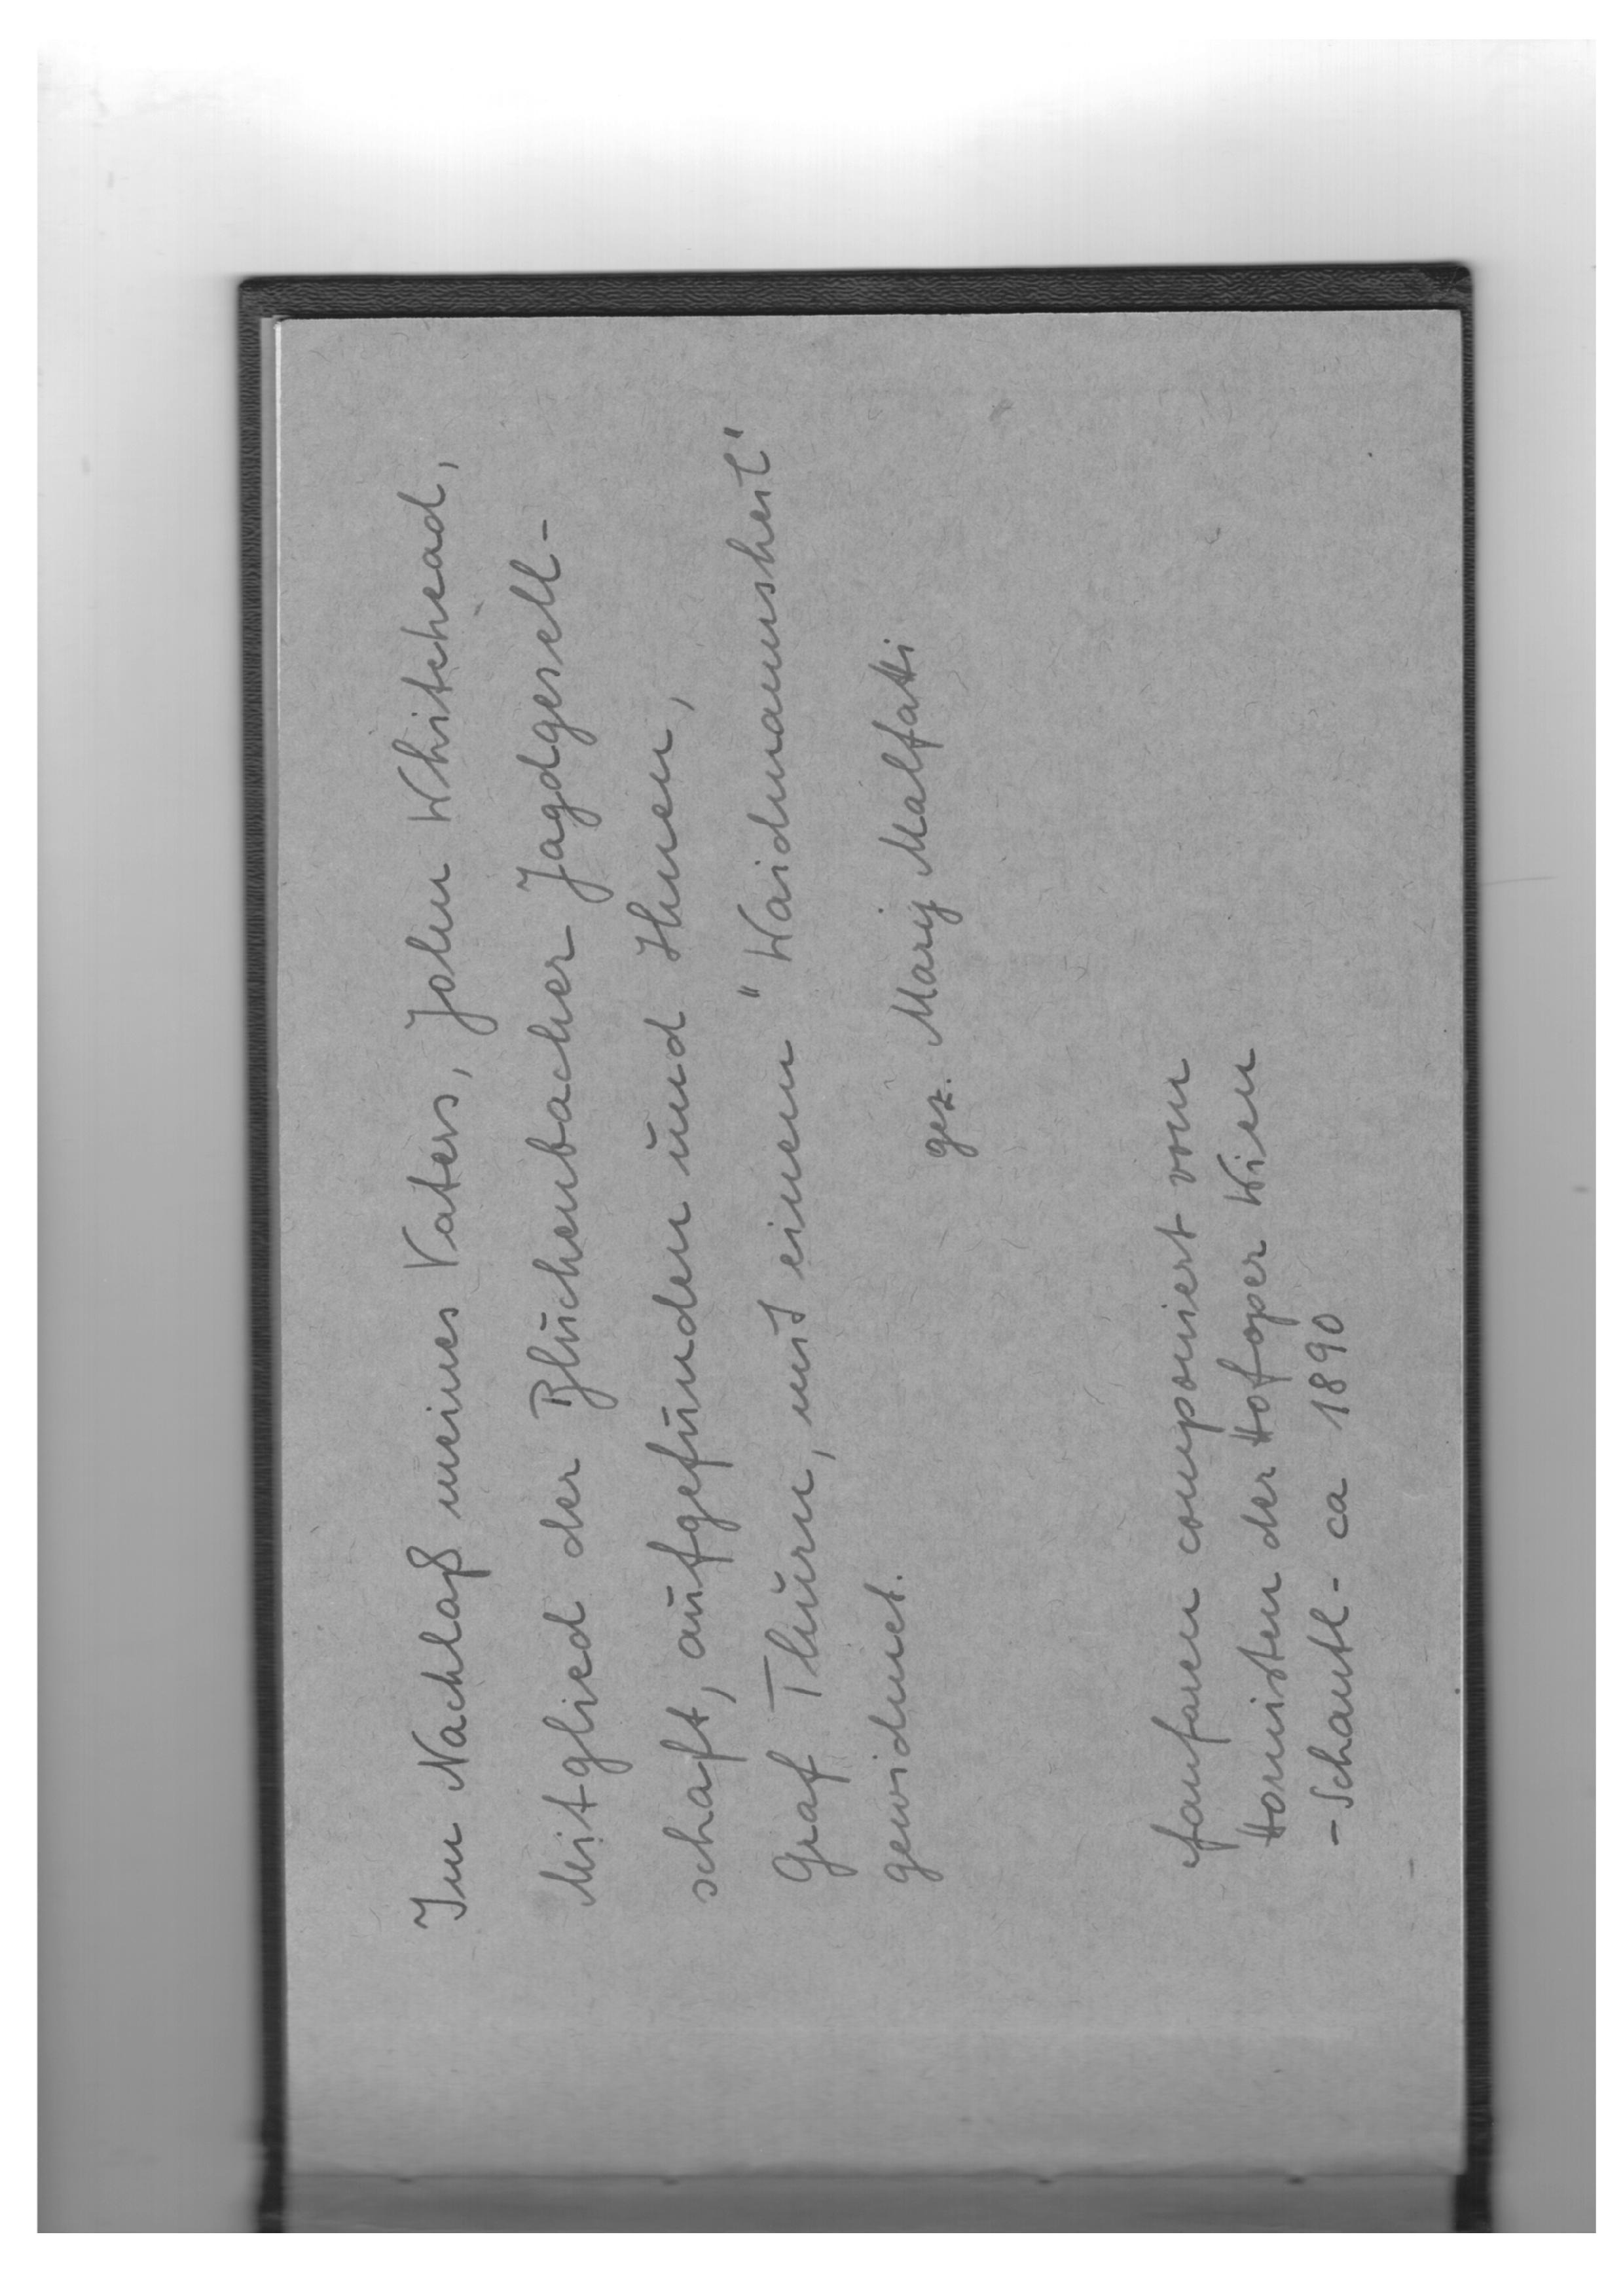 Im Nachlaß meines Vaters, John Whitehead,
Mitglied der Blühenbacher Jagdgesell-
schaft, aufgefunden und Ihnen,
Graf Thurn, mit einem "Waidmannsheil"
gewidmet.
gez. Mary Malfatti
Fanfaren componiert vom
Hornisten der Hofoper Wien
- Schantl - ca 1890